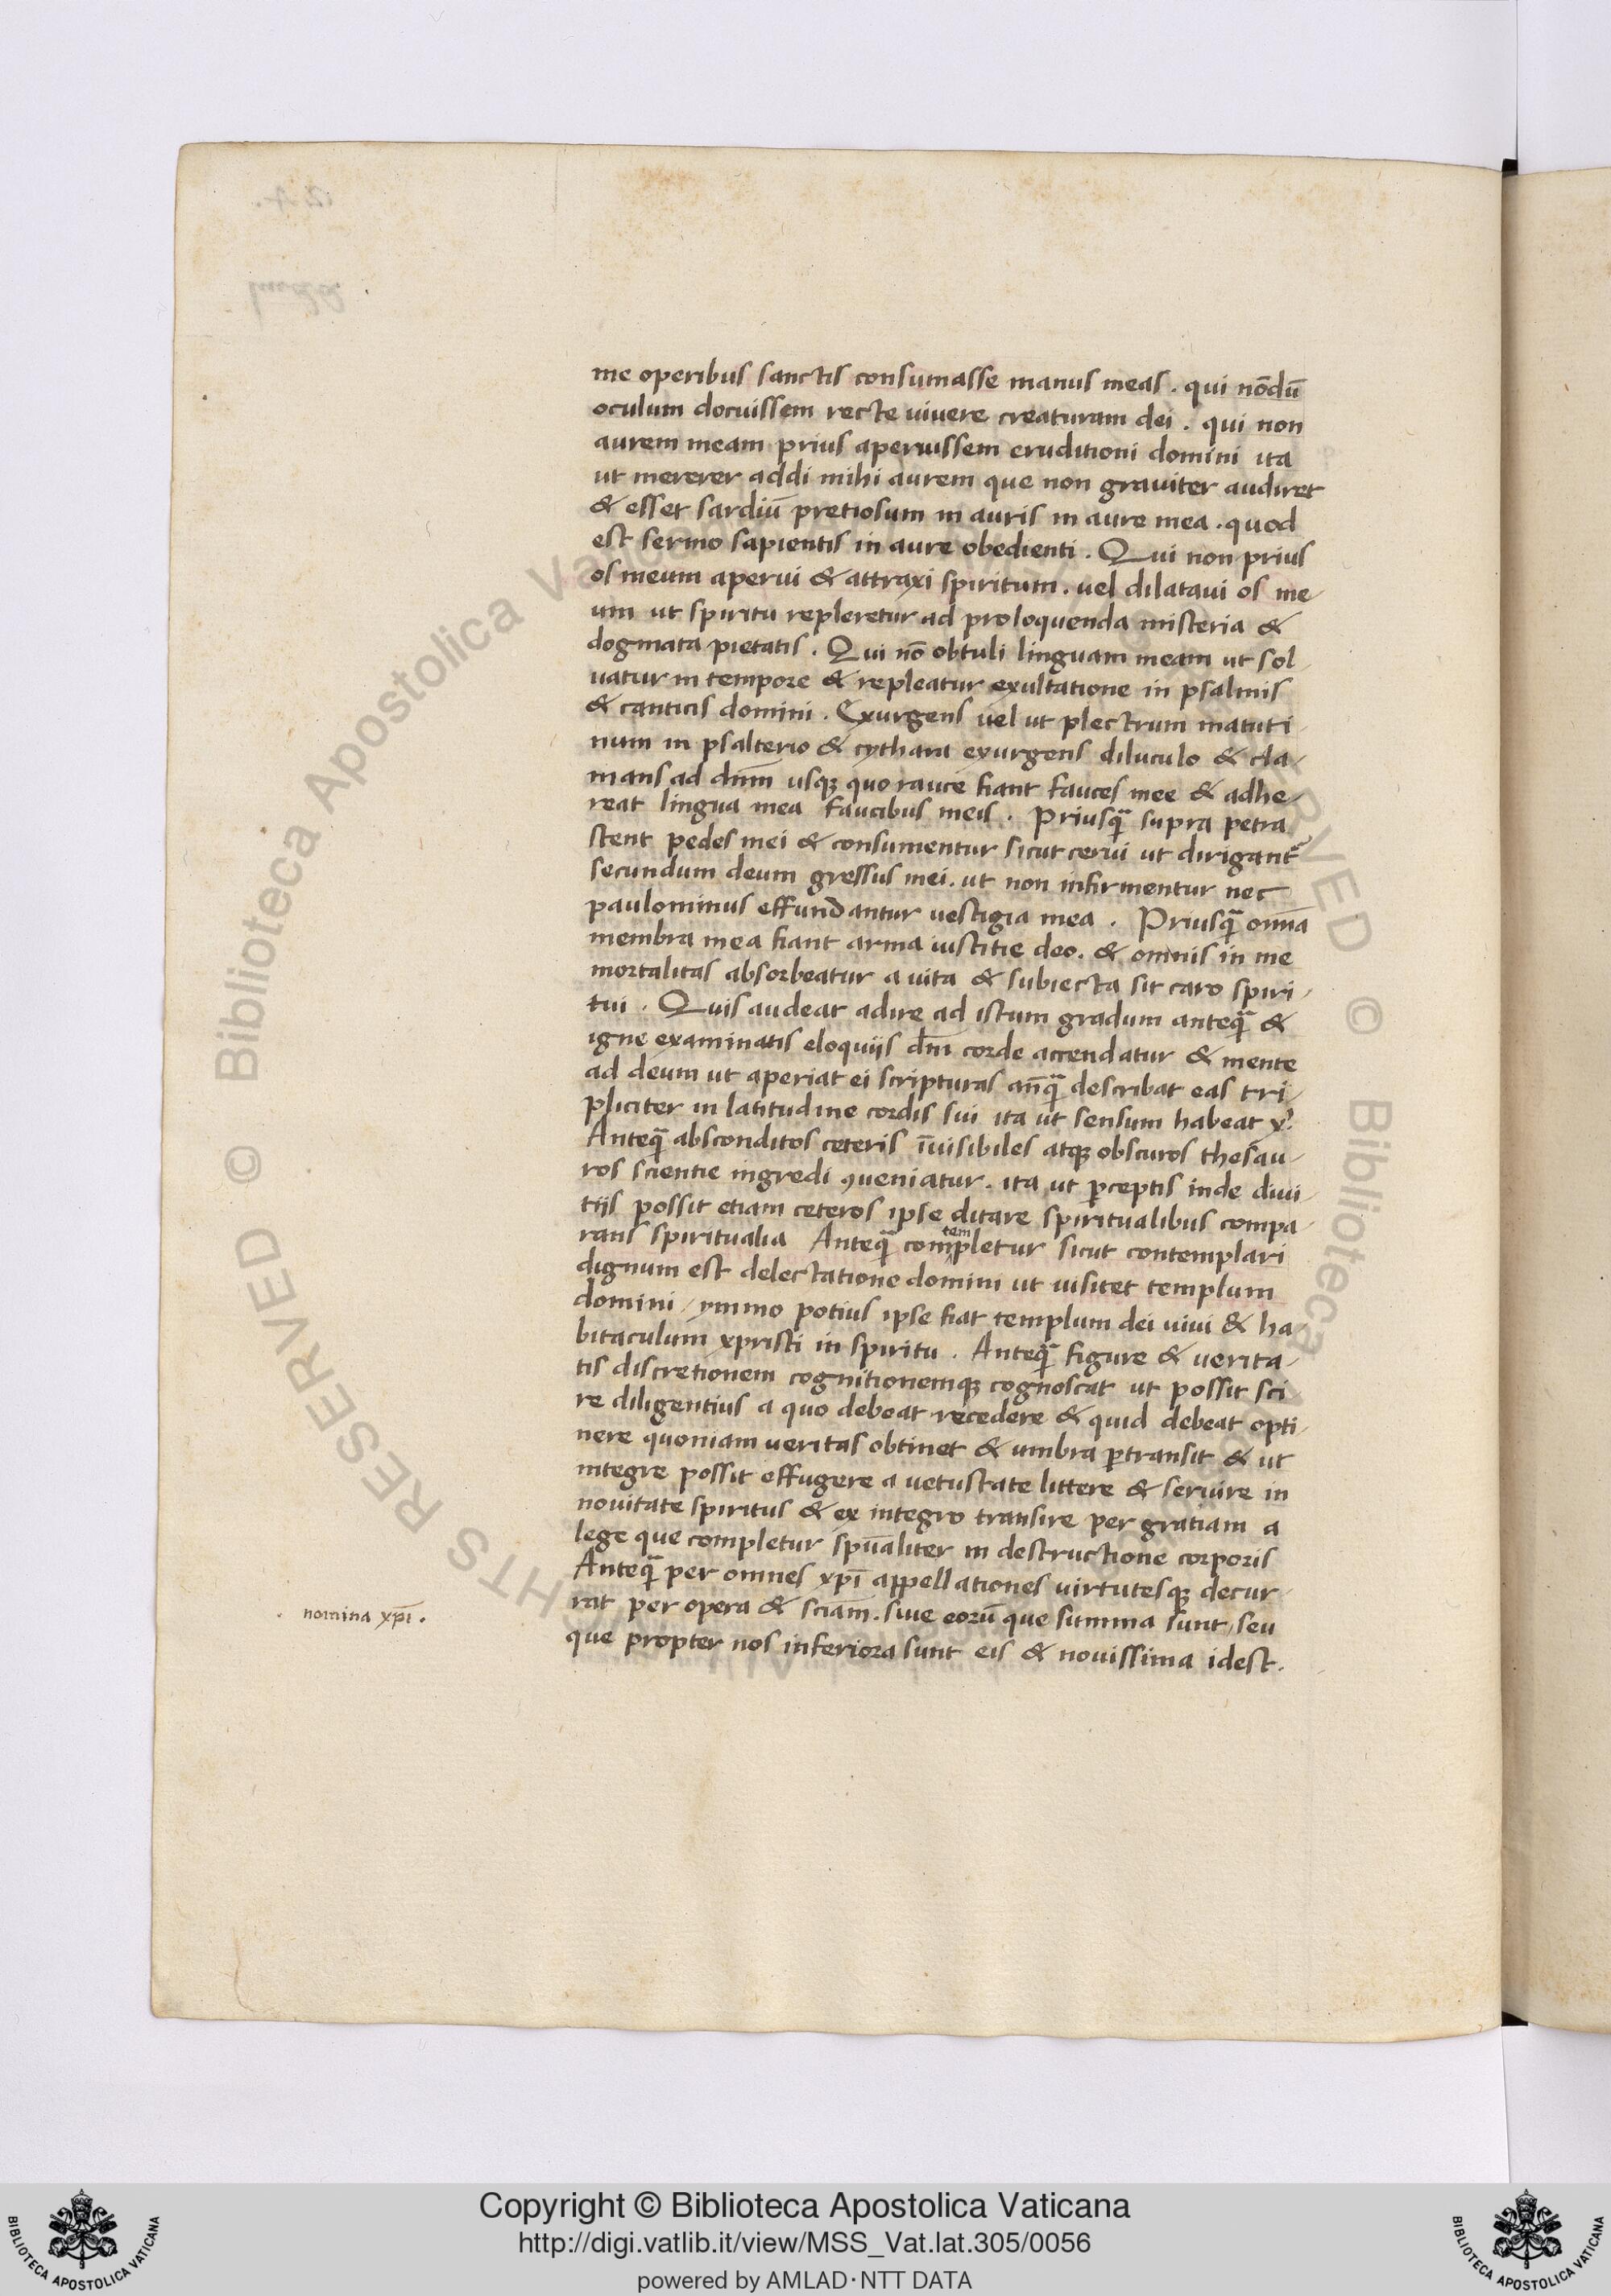 me operibus sanctis consumasse manus meas . qui nōdū
oculum docuissem recte vivere creaturam dei . qui non
aurem meam prius aperuissem eruditioni domini ita
ut mererer addi mihi aurem que non graviter audiret
& esset sardiū pretiosum in auris in aure mea . quod
est sermo sapientis in aure obedienti . Qui non prius
os meum aperui & attraxi spiritum . vel dilatavi os me-
um ut spiritu repleretur ad proloquenda misteria &
dogmata pietatis . Qui nō obtuli linguam meam ut sol-
vatur in tempore & repleatur exultatione in psalmis
& canticis domini . Exurgens vel ut plectrum matuti-
num in psalterio & cythara exurgens diluculo & cla-
mans ad dnm̄ usq; quo rauce fiant fauces mee & adhe-
reat lingua mea faucibus meis . Priusq̄ supra petra
stent pedes mei & consumentur sicut cervi ut dirigant᷑
secundum deum gressus mei . ut non infirmentur nec
paulominus effundantur vestigia mea . Priusq̄ omīa
membra mea fiant arma iustitie deo . & omnis in me
mortalitas absorbeatur a vita & subiecta sit caro spiri-
tui . Quis audeat adire ad istum gradum anteq̄ &
igne examinatis eloquiis dn̄i corde accendatur & mente
ad deum ut aperiat ei scripturas an̄q̄ describat eas tri-
pliciter in latitudine cordis sui ita ut sensum habeat x̄.
Anteq̄ absconditos ceteris īvisibiles atq; obscuros thesau-
ros scientie ingredi ꝯveniatur . ita ut p̱ceptis inde divi-
tiis possit etiam ceteros ipse ditare spiritualibus compa-
rans spiritualia Anteq̄ com^tem pletur sicut contemplari
dignum est delectatione domini ut visitet templum
domini / ymmo potius ipse fiat templum dei vivi & ha-
bitaculum xpristi in spiritu . Anteq̄ figure & verita-
tis discretionem cognitionemq; cognoscat ut possit sci-
re diligentius a quo debeat recedere & quid debeat opti-
nere quoniam veritas obtinet & umbra p̱transit & ut
integre possit effugere a vetustate littere & servire in
novitate spiritus & ex integro transire per gratiam a
lege que completur spūaliter in destructione corporis
Anteq̄ per omnes xp̄i appellationes virtutesq; decur-
rat per opera & sciam̄ . sive eorū que summa sunt / seu
que propter nos inferiora sunt eis & novissima idest .
nomina xp̄i .
Copyright © Biblioteca Apostolica Vaticana
http://digi.vatlib.it/view/MSS_Vat.lat.305/0056
powered by AMLAD·NTT DATA